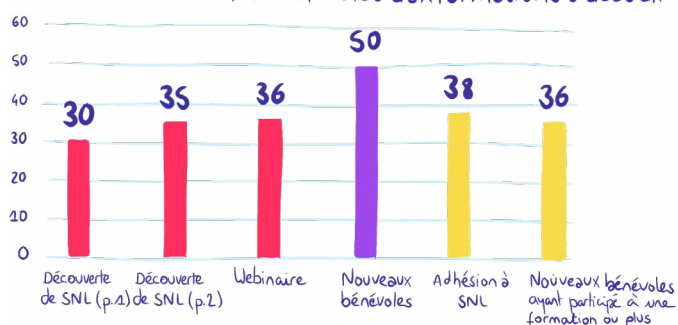 60
50
40
30
20
10
0
30
35
36
50
38
36
Découverte
de SNL (p.1)
Découverte
de SNL (p.2)
Webinaire
Nouveaux
bénévoles
Adhésion à
SNL
Nouveaux bénévoles
ayant participé à une
formation ou plus